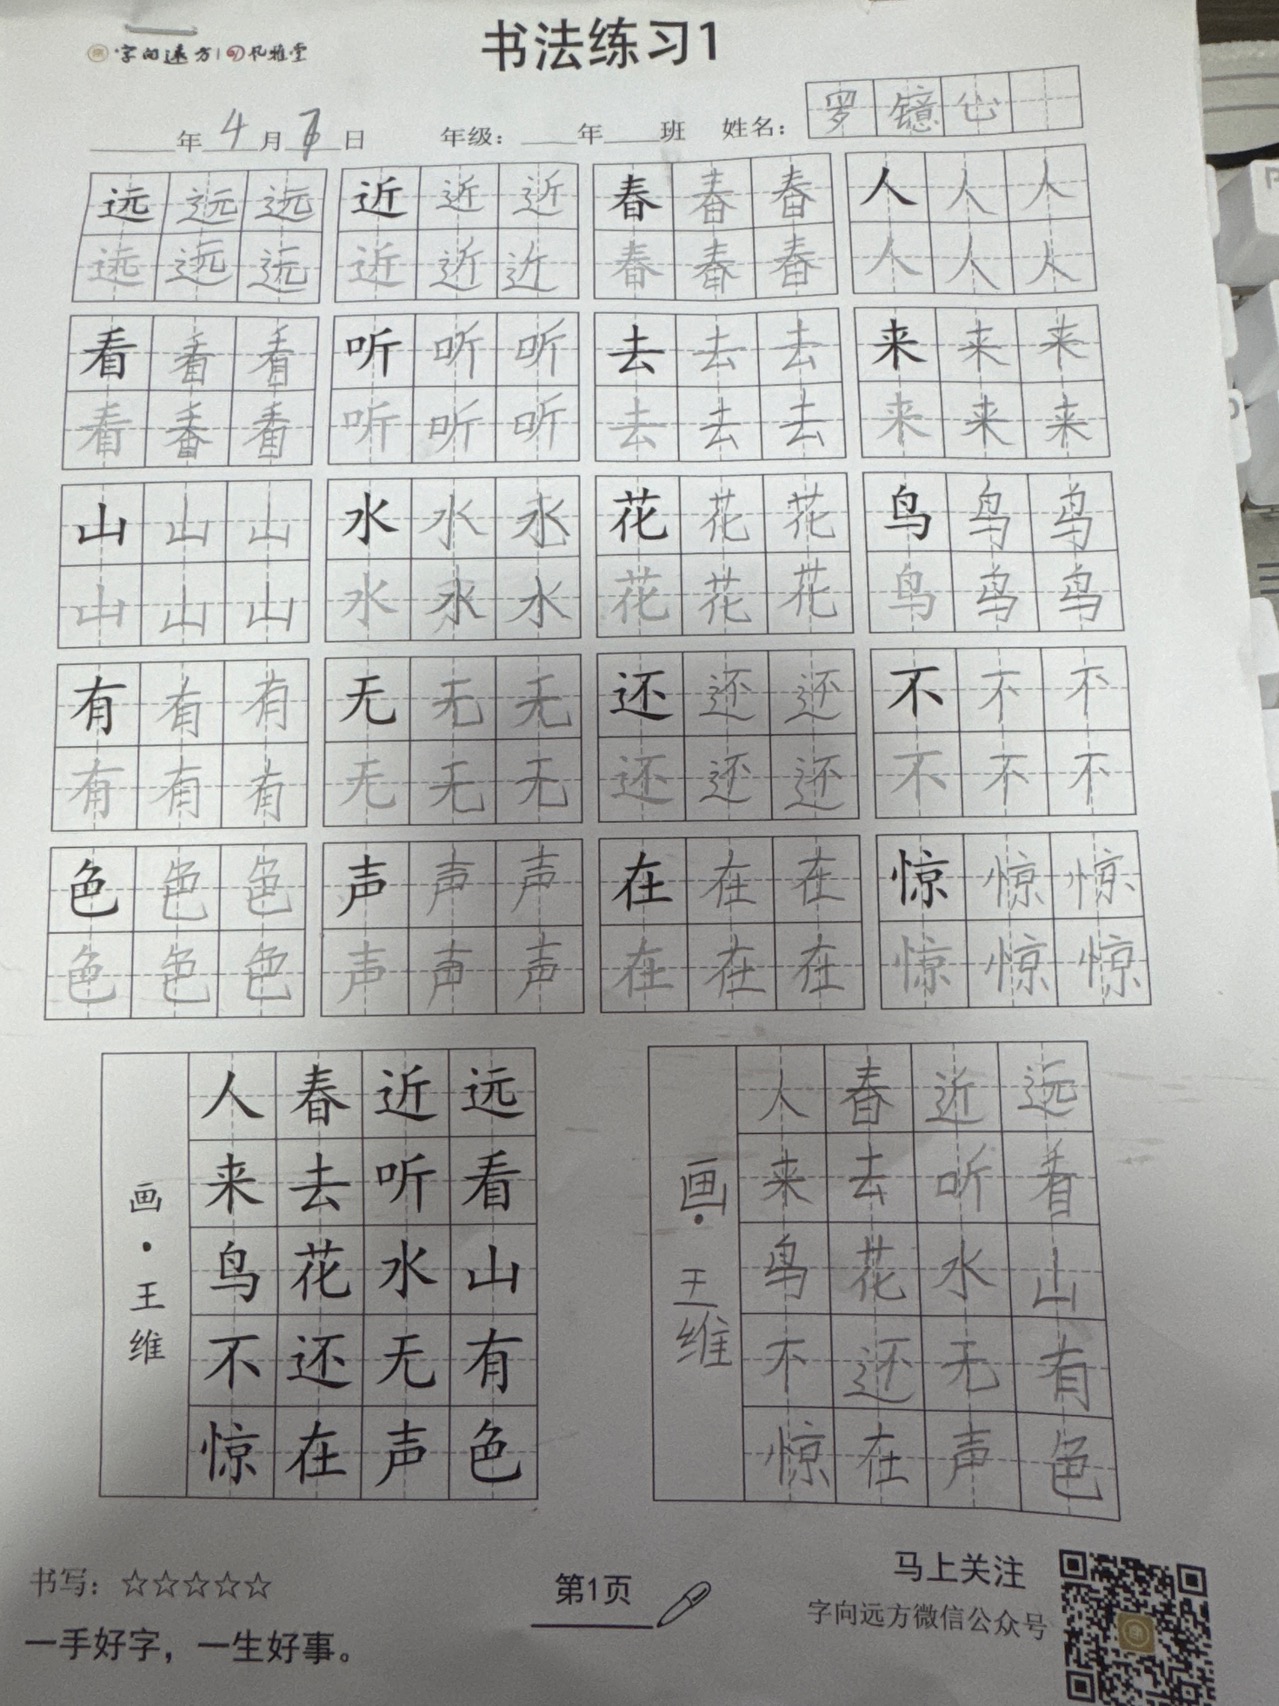 字向远方 风雅堂
书法练习1
年 4 月 7 日 年级： 年 班 姓名： 罗镱心
远 远 远 近 近 近 春 春 春 人 人 人
远 远 远 近 近 近 春 春 春 人 人 人
看 看 看 听 听 听 去 去 去 来 来 来
看 看 看 听 听 听 去 去 去 来 来 来
山 山 山 水 水 水 花 花 花 鸟 鸟 鸟
山 山 山 水 水 水 花 花 花 鸟 鸟 鸟
有 有 有 无 无 无 还 还 还 不 不 不
有 有 有 无 无 无 还 还 还 不 不 不
色 色 色 声 声 声 在 在 在 惊 惊 惊
色 色 色 声 声 声 在 在 在 惊 惊 惊
远看山有色
近听水无声
春去花还在
人来鸟不惊
画·王维
远看山有色
近听水无声
春去花还在
人来鸟不惊
画·王维
书写：☆☆☆☆☆
一手好字，一生好事。
第1页
马上关注
字向远方微信公众号